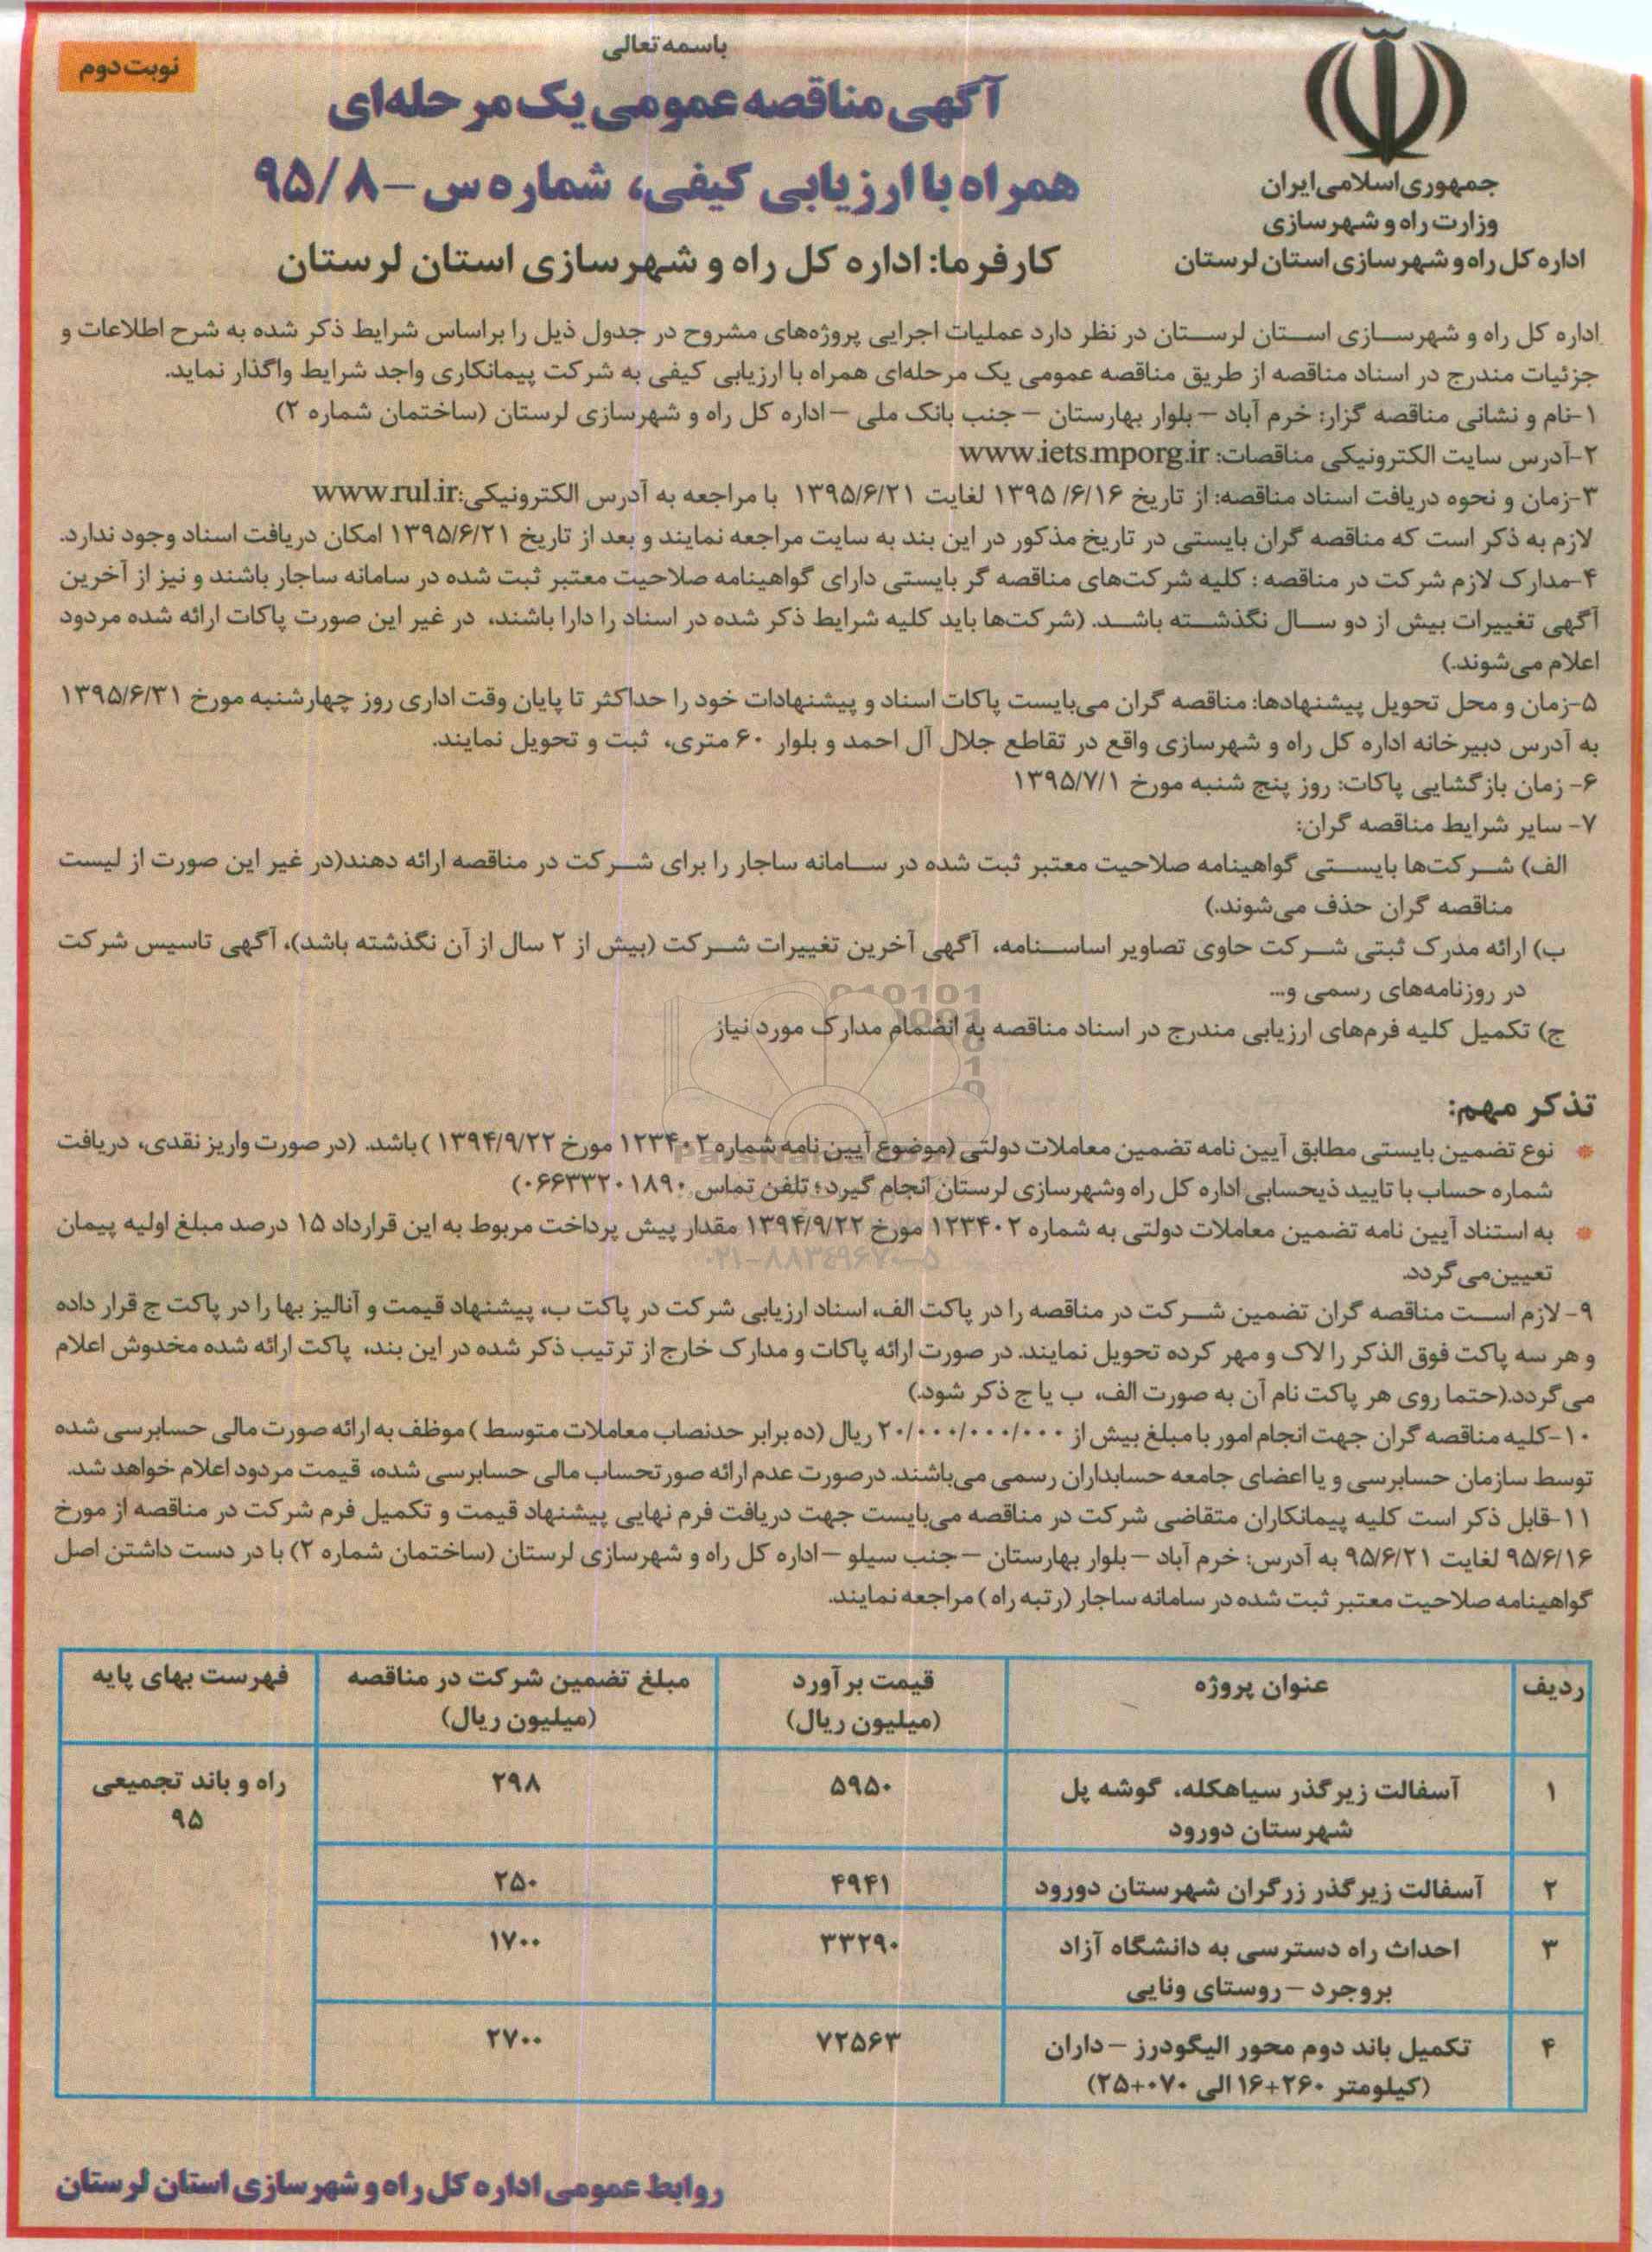 باسمه تعالی
نوبت دوم
آگهی مناقصه عمومی یک مرحله‌ای
همراه با ارزیابی کیفی، شماره س – ۹۵/۸
کارفرما: اداره کل راه و شهرسازی استان لرستان
جمهوری اسلامی ایران
وزارت راه و شهرسازی
اداره کل راه و شهرسازی استان لرستان
اداره کل راه و شهرسازی استان لرستان در نظر دارد عملیات اجرایی پروژه‌های مشروح در جدول ذیل را براساس شرایط ذکر شده به شرح اطلاعات و
جزئیات مندرج در اسناد مناقصه از طریق مناقصه عمومی یک مرحله‌ای همراه با ارزیابی کیفی به شرکت پیمانکاری واجد شرایط واگذار نماید.
۱-نام و نشانی مناقصه گزار: خرم آباد – بلوار بهارستان – جنب بانک ملی – اداره کل راه و شهرسازی لرستان (ساختمان شماره ۲)
۲-آدرس سایت الکترونیکی مناقصات: www.iets.mporg.ir
۳-زمان و نحوه دریافت اسناد مناقصه: از تاریخ ۱۳۹۵/۶/۱۶ لغایت ۱۳۹۵/۶/۲۱ با مراجعه به آدرس الکترونیکی: www.rul.ir
لازم به ذکر است که مناقصه گران بایستی در تاریخ مذکور در این بند به سایت مراجعه نمایند و بعد از تاریخ ۱۳۹۵/۶/۲۱ امکان دریافت اسناد وجود ندارد.
۴-مدارک لازم شرکت در مناقصه : کلیه شرکت‌های مناقصه گر بایستی دارای گواهینامه صلاحیت معتبر ثبت شده در سامانه ساجار باشند و نیز از آخرین
آگهی تغییرات بیش از دو سال نگذشته باشد. (شرکت‌ها باید کلیه شرایط ذکر شده در اسناد را دارا باشند، در غیر این صورت پاکات ارائه شده مردود
اعلام می‌شوند.)
۵-زمان و محل تحویل پیشنهادها: مناقصه گران می‌بایست پاکات اسناد و پیشنهادات خود را حداکثر تا پایان وقت اداری روز چهارشنبه مورخ ۱۳۹۵/۶/۳۱
به آدرس دبیرخانه اداره کل راه و شهرسازی واقع در تقاطع جلال آل احمد و بلوار ۶۰ متری، ثبت و تحویل نمایند.
۶- زمان بازگشایی پاکات: روز پنج شنبه مورخ ۱۳۹۵/۷/۱
۷- سایر شرایط مناقصه گران:
الف) شرکت‌ها بایستی گواهینامه صلاحیت معتبر ثبت شده در سامانه ساجار را برای شرکت در مناقصه ارائه دهند(در غیر این صورت از لیست
مناقصه گران حذف می‌شوند.)
ب) ارائه مدرک ثبتی شرکت حاوی تصاویر اساسنامه، آگهی آخرین تغییرات شرکت (بیش از ۲ سال از آن نگذشته باشد)، آگهی تاسیس شرکت
در روزنامه‌های رسمی و...
ج) تکمیل کلیه فرم‌های ارزیابی مندرج در اسناد مناقصه به انضمام مدارک مورد نیاز
تذکر مهم:
* نوع تضمین بایستی مطابق آیین نامه تضمین معاملات دولتی (موضوع آیین نامه شماره ۱۲۳۴۰۲ مورخ ۱۳۹۴/۹/۲۲) باشد. (در صورت واریز نقدی، دریافت
شماره حساب با تایید ذیحسابی اداره کل راه وشهرسازی لرستان انجام گیرد؛ تلفن تماس ۰۶۶۳۳۲۰۱۸۹۰)
* به استناد آیین نامه تضمین معاملات دولتی به شماره ۱۲۳۴۰۲ مورخ ۱۳۹۴/۹/۲۲ مقدار پیش پرداخت مربوط به این قرارداد ۱۵ درصد مبلغ اولیه پیمان
تعیین می گردد.
۰۲۱-۸۸۳۴۹۶۷۰-۵
۹- لازم است مناقصه گران تضمین شرکت در مناقصه را در پاکت الف، اسناد ارزیابی شرکت در پاکت ب، پیشنهاد قیمت و آنالیز بها را در پاکت ج قرار داده
و هر سه پاکت فوق الذکر را لاک و مهر کرده تحویل نمایند. در صورت ارائه پاکات و مدارک خارج از ترتیب ذکر شده در این بند، پاکت ارائه شده مخدوش اعلام
می گردد.(حتما روی هر پاکت نام آن به صورت الف، ب یا ج ذکر شود.)
۱۰-کلیه مناقصه گران جهت انجام امور با مبلغ بیش از ۲۰/۰۰۰/۰۰۰/۰۰۰ ریال (ده برابر حدنصاب معاملات متوسط) موظف به ارائه صورت مالی حسابرسی شده
توسط سازمان حسابرسی و یا اعضای جامعه حسابداران رسمی می‌باشند. درصورت عدم ارائه صورتحساب مالی حسابرسی شده، قیمت مردود اعلام خواهد شد.
۱۱-قابل ذکر است کلیه پیمانکاران متقاضی شرکت در مناقصه می‌بایست جهت دریافت فرم نهایی پیشنهاد قیمت و تکمیل فرم شرکت در مناقصه از مورخ
۹۵/۶/۱۶ لغایت ۹۵/۶/۲۱ به آدرس: خرم آباد – بلوار بهارستان – جنب سیلو – اداره کل راه و شهرسازی لرستان (ساختمان شماره ۲) با در دست داشتن اصل
گواهینامه صلاحیت معتبر ثبت شده در سامانه ساجار (رتبه راه) مراجعه نمایند.
ردیف عنوان پروژه قیمت برآورد (میلیون ریال) مبلغ تضمین شرکت در مناقصه (میلیون ریال) فهرست بهای پایه
۱ آسفالت زیرگذر سیاهکله، گوشه پل شهرستان دورود ۵۹۵۰ ۲۹۸ راه و باند تجمیعی ۹۵
۲ آسفالت زیرگذر زرگران شهرستان دورود ۴۹۴۱ ۲۵۰
۳ احداث راه دسترسی به دانشگاه آزاد بروجرد – روستای ونایی ۳۳۲۹۰ ۱۷۰۰
۴ تکمیل باند دوم محور الیگودرز – داران (کیلومتر ۲۶۰+۱۶ الی ۰۷۰+۲۵) ۷۲۵۶۳ ۲۷۰۰
روابط عمومی اداره کل راه و شهرسازی استان لرستان